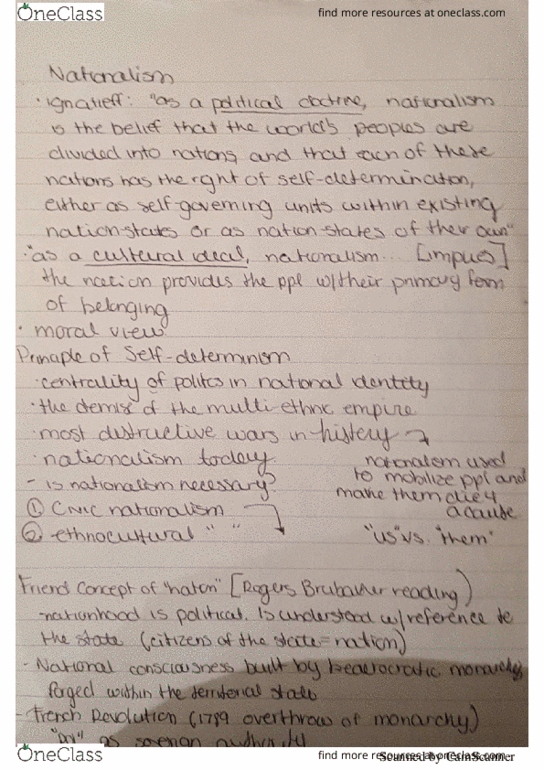 OneClass
find more resources at oneclass.com
Nationalism
· Ignatieff: "as a political doctrine, nationalism
is the belief that the world's peoples are
divided into nations, and that each of these
nations has the right of self-determination,
either as self-governing units within existing
nation-states or as nation-states of their own"
· "as a cultural ideal, nationalism... [implies]
the nation provides the ppl w/their primary form
of belonging
· moral view
Principle of Self-determinism
· centrality of politics in national identity
· the demise of the multi-ethnic empire
· most destructive wars in history →
· nationalism today
nationalism used
to mobilize ppl and
make them die 4
a cause
- is nationalism necessary?
① Civic nationalism
② ethnocultural " "
"us" vs. "them"
Concept of "nation" [Rogers Brubaker reading)
- nationhood is political. Is understood w/reference to
the state (citizens of the state = nation)
- National consciousness built by monarchy,
forged within the territorial state
- French Revolution (1789 overthrow of monarchy)
as authority
OneClass
find more resources at oneclass.com
Scanned by CamScanner